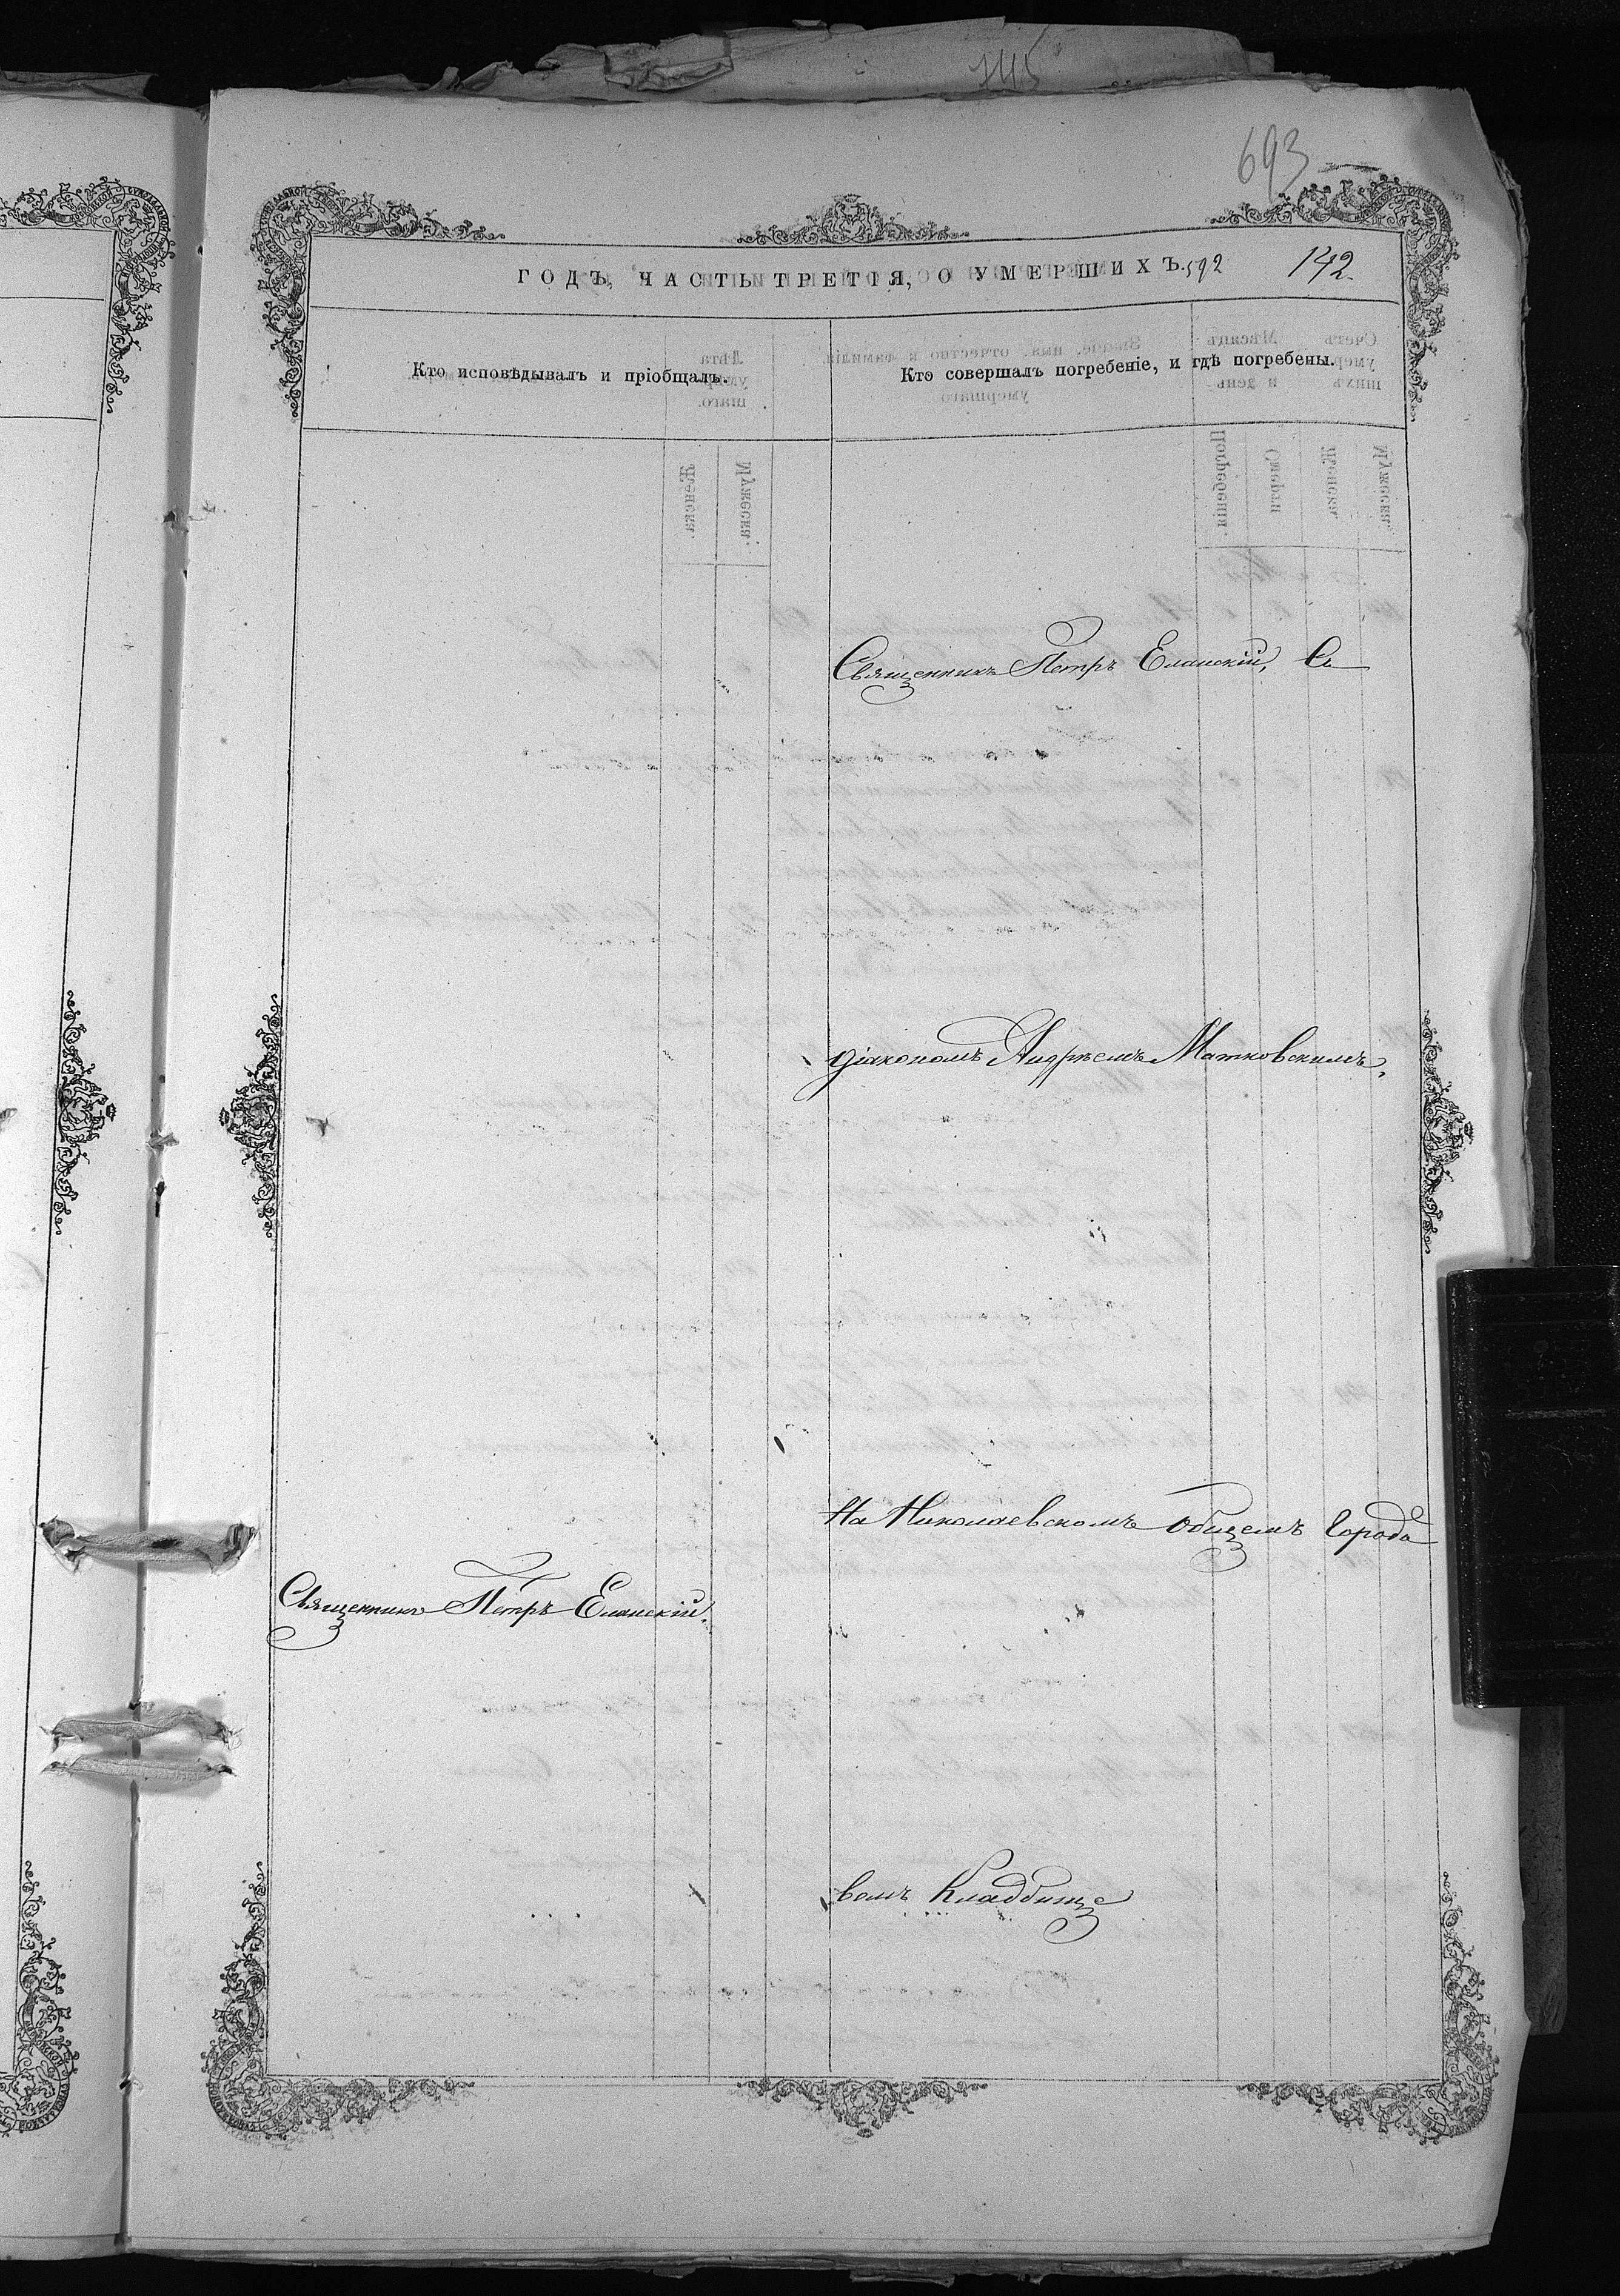 145
693
ГОДЪ, ЧАСТЬ ТРЕТІЯ, О УМЕРШИХЪ. 592 142.
Кто исповѣдывалъ и пріобщалъ.
Кто совершалъ погребеніе, и гдѣ погребены.
Священникъ Петръ Еланскій, Съ
діакономъ Андреемъ Матковскимъ,
На Николаевскомъ общемъ Городо
Священникъ Петръ Еланскій.
вомъ Кладбищѣ